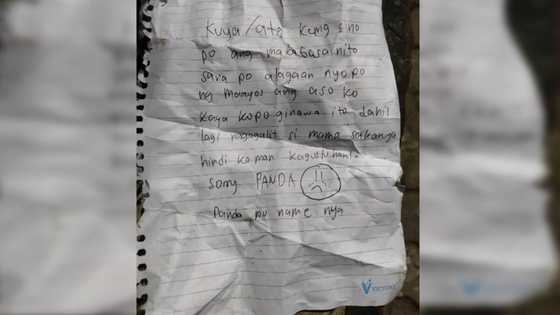 Kuya/ate kung sino
po ang makabasa nito
sana po alagaan nyo po
ng maayos ang aso ko
kaya ko po ginawa ito dahil
lagi nagagalit si mama sakanya
hindi ko man kagustuhan!
sorry PANDA
Panda po name nya